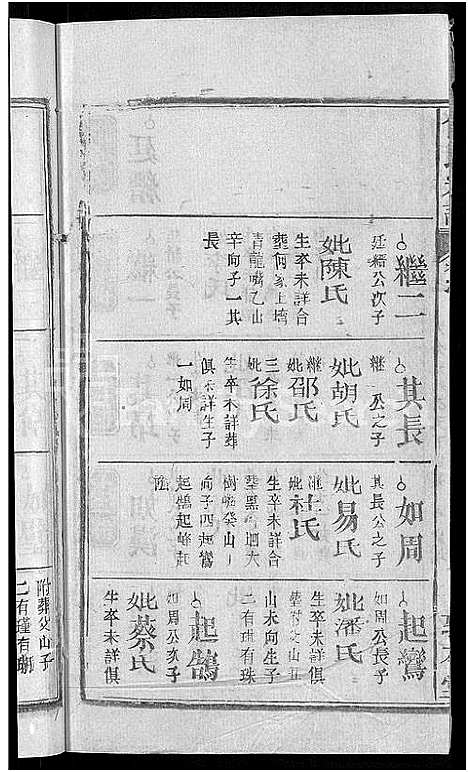 繼二
廷縉公次子
妣陳氏
生卒未詳合
葬何家上塆
青龍嘴乙山
辛向子一其
長
其長
繼二公之子
妣胡氏
繼妣邵氏
三妣徐氏
生卒未詳葬
俱未詳生子
一如周
如周
其長公之子
妣易氏
繼妣杜氏
生卒未詳合
樹嘴癸山丁
向子四起鸞
起鵠起峰起
起鸞
如周公長子
妣潘氏
生卒未詳俱
葬附父山丑
山未向生子
二有璉有珠
起鵠
如周公次子
妣蔡氏
生卒未詳俱
附葬父山子
二有瑾有瑚